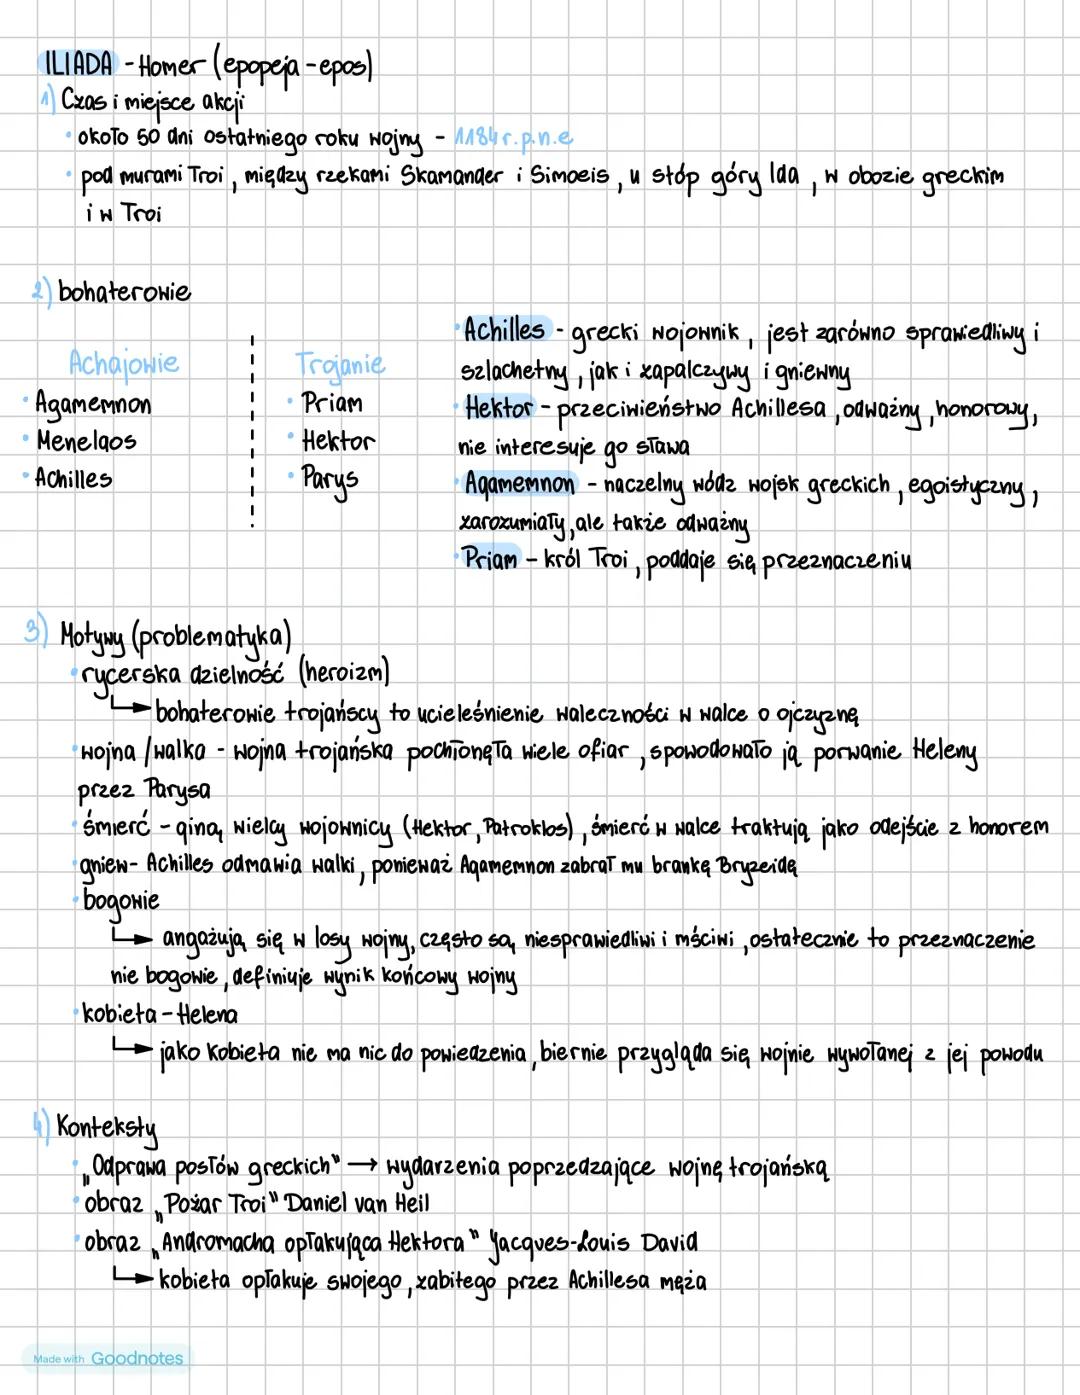 ILIADA - Homer (epopeja - epos)
1) Czas i miejsce akcji
• około 50 dni ostatniego roku wojny - 1184 r.p.n.e
• pod murami Troi, między rzekami Skamander i Simoeis, u stóp góry Ida, w obozie greckim
i w Troi
2) bohaterowie
Achajowie
• Agamemnon
• Menelaos
• Achilles
Trojanie
• Priam
• Hektor
• Parys
• Achilles - grecki wojownik, jest zarówno sprawiedliwy i
szlachetny, jak i zapalczywy i gniewny
• Hektor - przeciwieństwo Achillesa, odważny, honorowy,
nie interesuje go sława
• Agamemnon - naczelny wódz wojsk greckich, egoistyczny,
zarozumiały, ale także odważny
• Priam - król Troi, poddaje się przeznaczeniu
3) Motywy (problematyka)
• rycerska dzielność (heroizm)
↳ bohaterowie trojańscy to ucieleśnienie waleczności w walce o ojczyznę
• wojna / walka - wojna trojańska pochłonęła wiele ofiar, spowodowało ją porwanie Heleny
przez Parysa
• śmierć - giną wielcy wojownicy (Hektor, Patroklos), śmierć w walce traktują jako odejście z honorem
• gniew - Achilles odmawia walki, ponieważ Agamemnon zabrał mu brankę Bryzeidę
• bogowie
↳ angażują się w losy wojny, często są niesprawiedliwi i mściwi, ostatecznie to przeznaczenie
nie bogowie, definiuje wynik końcowy wojny
• kobieta - Helena
↳ jako kobieta nie ma nic do powiedzenia, biernie przygląda się wojnie wywołanej z jej powodu
4) Konteksty
• „Odprawa posłów greckich" → wydarzenia poprzedzające wojnę trojańską
• obraz „Pożar Troi" Daniel van Heil
• obraz „Andromacha opłakująca Hektora" Jacques-Louis David
↳ kobieta opłakuje swojego, zabitego przez Achillesa męża
Made with Goodnotes